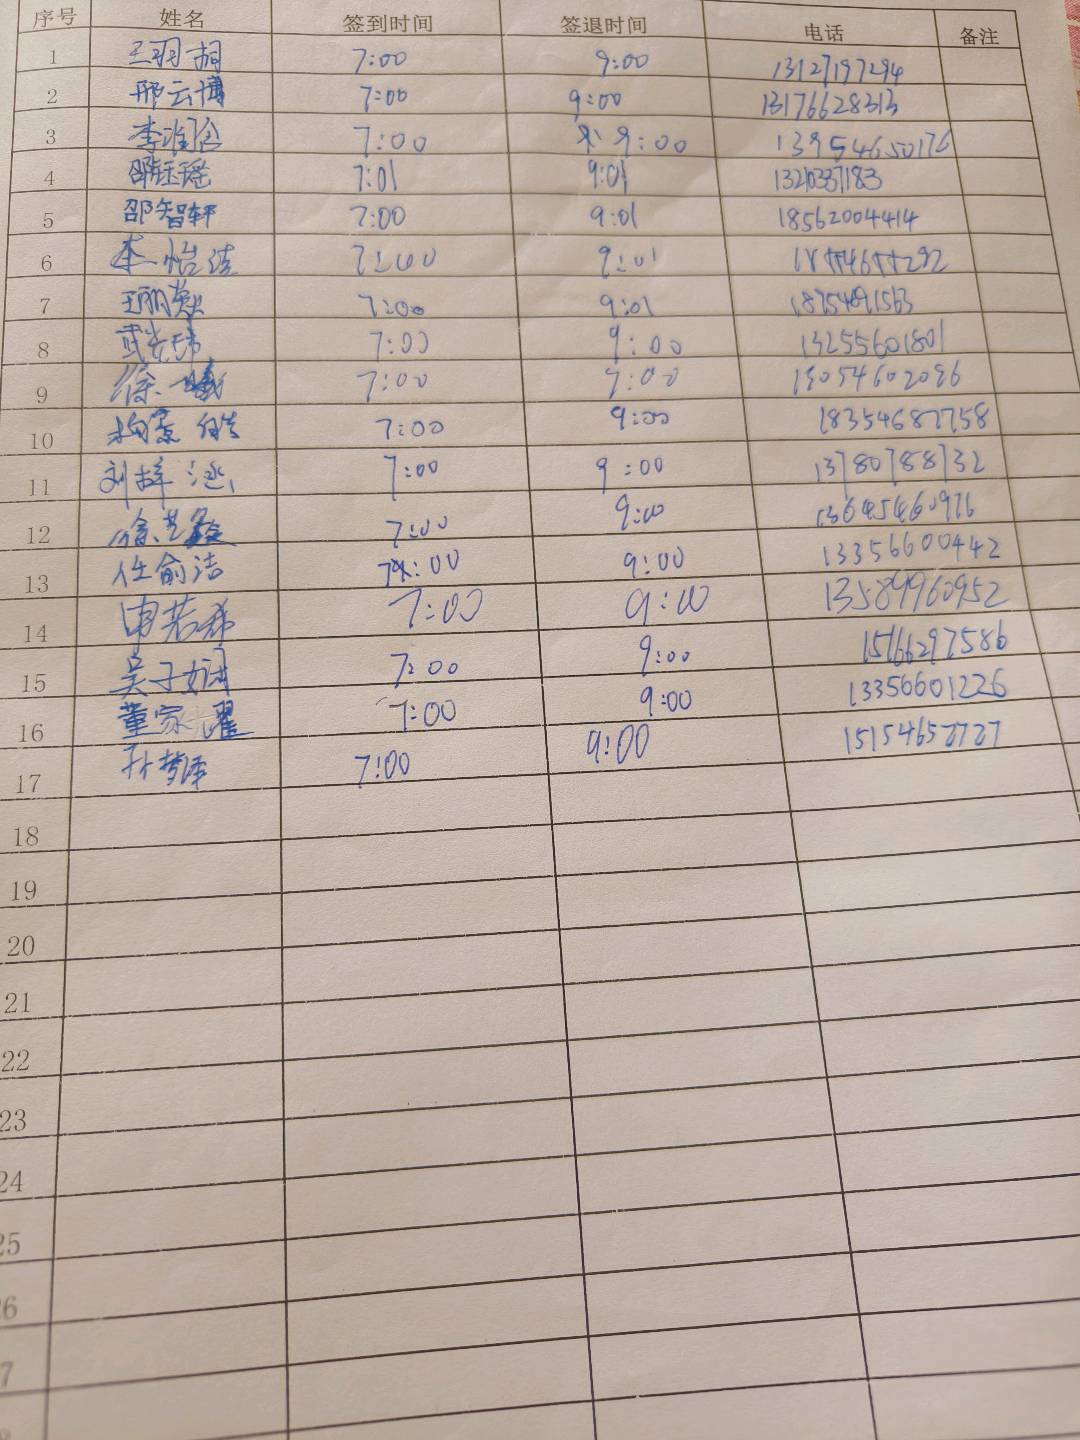 序号 姓名 签到时间 签退时间 电话 备注
1 王羽桐 7:00 9:00 13127197294
2 邢云博 7:00 9:00 13176628313
3 李 7:00 9:00 13954650176
4 邵钰瑶 7:01 9:01
5 邵智轩 7:00 9:01 18562004414
6 李怡洁 7:00 9:01
7 7:00 9:01 18754891563
8 7:00 9:00 13255601801
9 徐 7:00 9:00
10 7:00 9:00 18354687758
11 刘梓涵 7:00 9:00 13780788732
12 徐艺 7:00 9:00 13645460976
13 任俞洁 7:00 9:00 13356600442
14 申若希 7:00 9:00 13589960952
15 吴子娴 7:00 9:00 15166297586
16 董家耀 7:00 9:00 13356601226
17 孙梦泽 7:00 9:00 15154652727
18
19
20
21
22
23
24
25